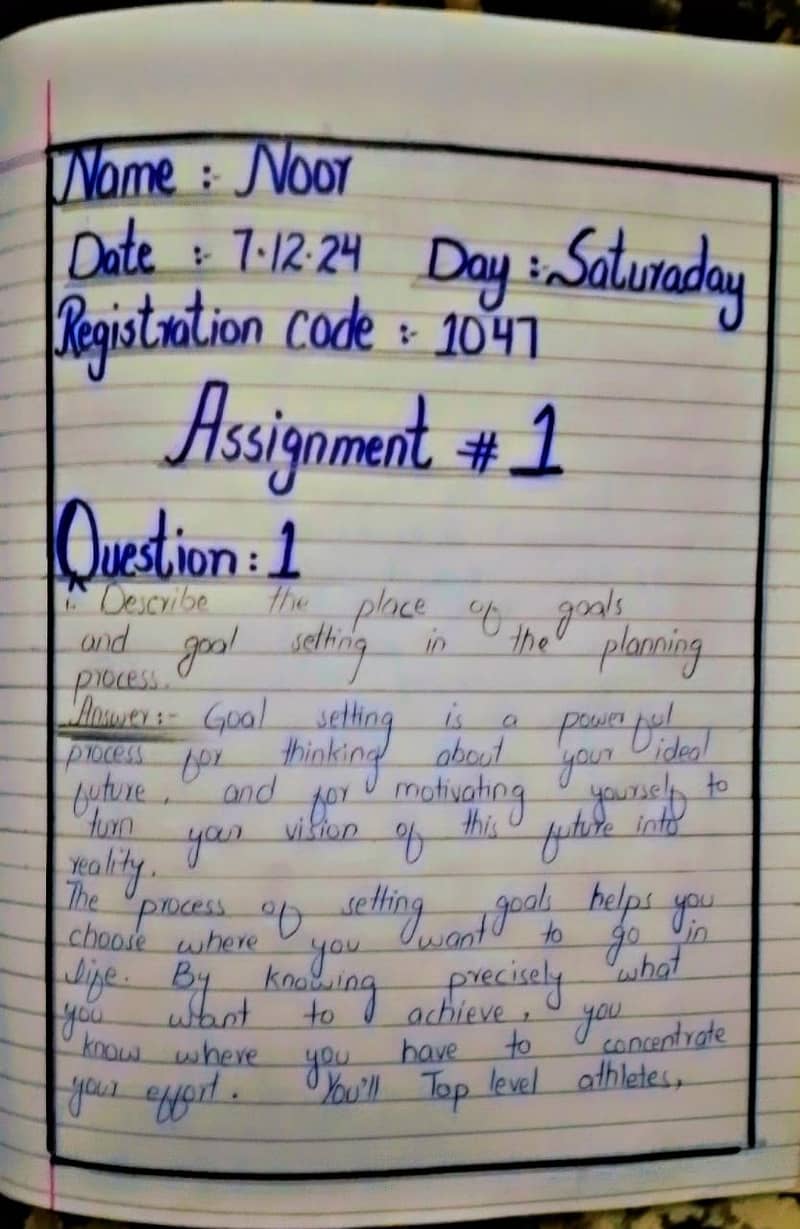 Name :- Noor
Date :- 7.12.24 Day :- Saturaday
Registration code :- 1047
Assignment # 1
Question : 1
1. Describe the place of goals
and goal setting in the planning
process.
Answer:- Goal setting is a powerful
process for thinking about your ideal
future, and for motivating yourself to
turn your vision of this future into
reality.
The process of setting goals helps you
choose where you want to go in
life. By knowing precisely what
you want to achieve, you
know where you have to concentrate
your effort. You'll Top level athletes,